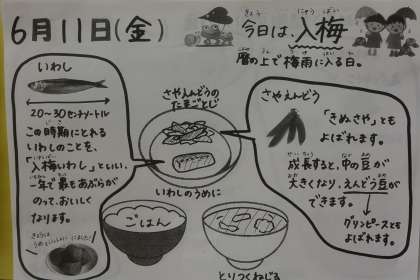 6月11日(金)
きょう にゅうばい
今日は、入梅
暦の上で梅雨に入る日。
いわし
20〜30センチメートル
この時期にとれる
いわしのことを、
「入梅いわし」といい、
一年で最もあぶらが
のって、おいしく
なります。
さやえんどうの
たまごとじ
いわしのうめに
ごはん
とりつくねじる
さやえんどう
「きぬさや」とも
よばれます。
成長すると、中の豆が
大きくなり、えんどう豆が
できます。
グリンピースとも
よばれます。